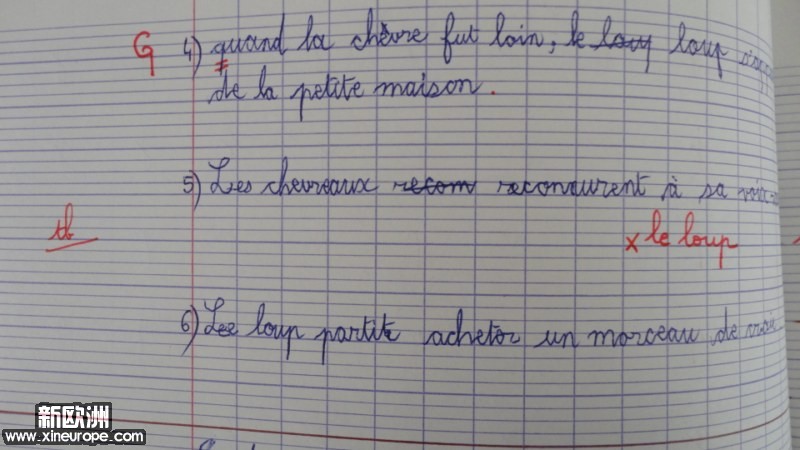 G 4) quand la chèvre fut loin, le louy loup s'app
de la petite maison.
5) Les chevreaux recom reconnurent à sa voix
tb
x le loup
6) Le loup partit acheter un morceau de
新欧洲
www.xineurope.com